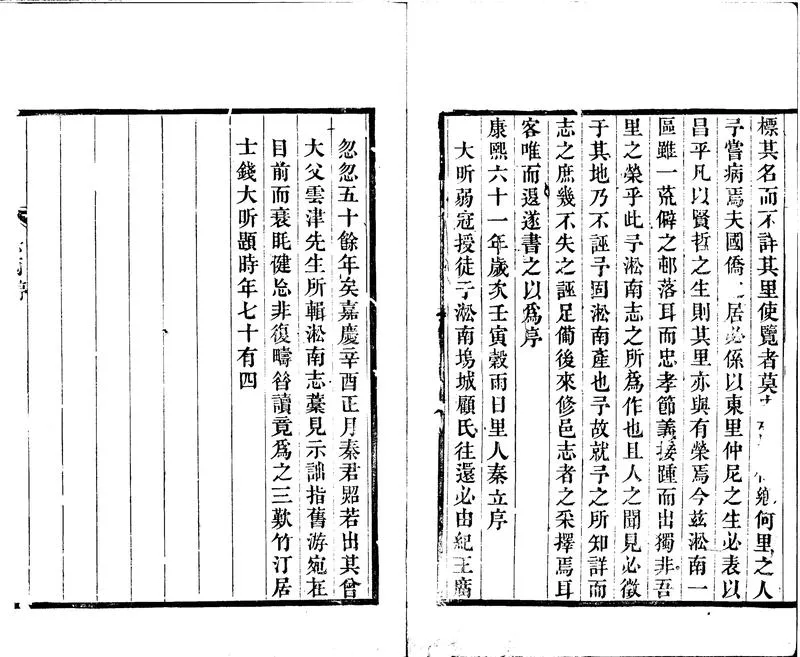 標其名而不詳其里使覽者莫鄉何里之人
予嘗病焉夫國僑居必係以東里仲尼之生必表以
昌平凡以賢哲之生則其里亦與有榮焉今茲淞南一
區雖一荒僻之邨落耳而忠孝節義接踵而出獨非吾
里之榮乎此予淞南志之所爲作也且人之聞見必徵
于其地乃不誣予固淞南產也予故就予之所知詳而
志之庶幾不失之誣足備後來修邑志者之采擇焉耳
客唯而退遂書之以爲序
康熙六十一年歲次壬寅穀雨日里人秦立序
大昕弱冠授徒于淞南塢城顧氏往還必由紀王廟
忽忽五十餘年矣嘉慶辛酉正月秦君炤若出其曾
大父雲津先生所輯淞南志藁見示詘指舊游宛在
目前而衰眊健忘非復疇昝讀竟爲之三歎竹汀居
士錢大昕題時年七十有四